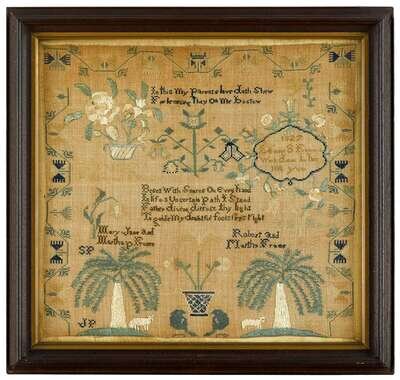 In this My Parents love doth Show
For learning They On Me Bestow
1835
Work done in her
year
Beset With Snares On Every hand
In life s Uncertain Path I Stand
Father divine diffuse thy light
To guide My doubtful footsteps Right
Mary Jane and
Martha P Frame
Robert and
Martha Frame
SP
JP